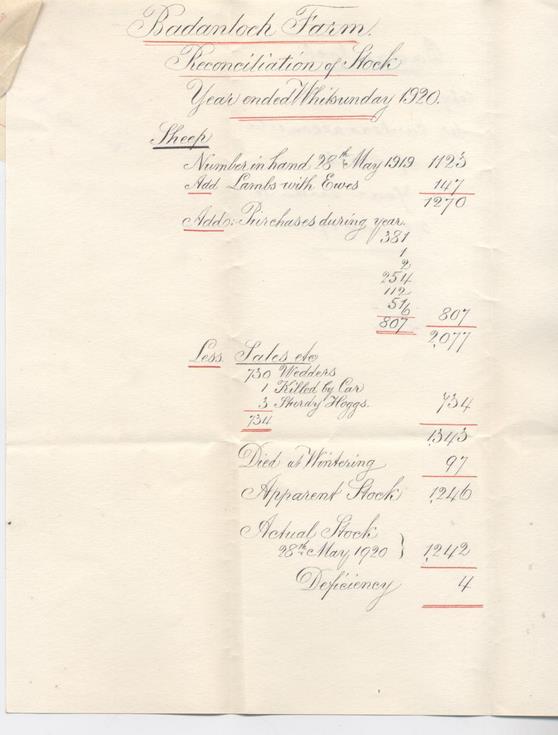 Badanloch Farm.
Reconciliation of Stock
Year ended Whitsunday 1920.
Sheep
Number in hand 28th May 1919 1123
Add Lambs with Ewes 147
1270
Add: Purchases during year.
381
1
2
254
112
51
6 807
807
2,077
Less Sales etc
730 Wedders
1 Killed by Car
3 Sturdy Hoggs. 734
734
1,343
Died at Wintering 97
Apparent Stock 1,246
Actual Stock
28th May 1920 } 1,242
Deficiency 4